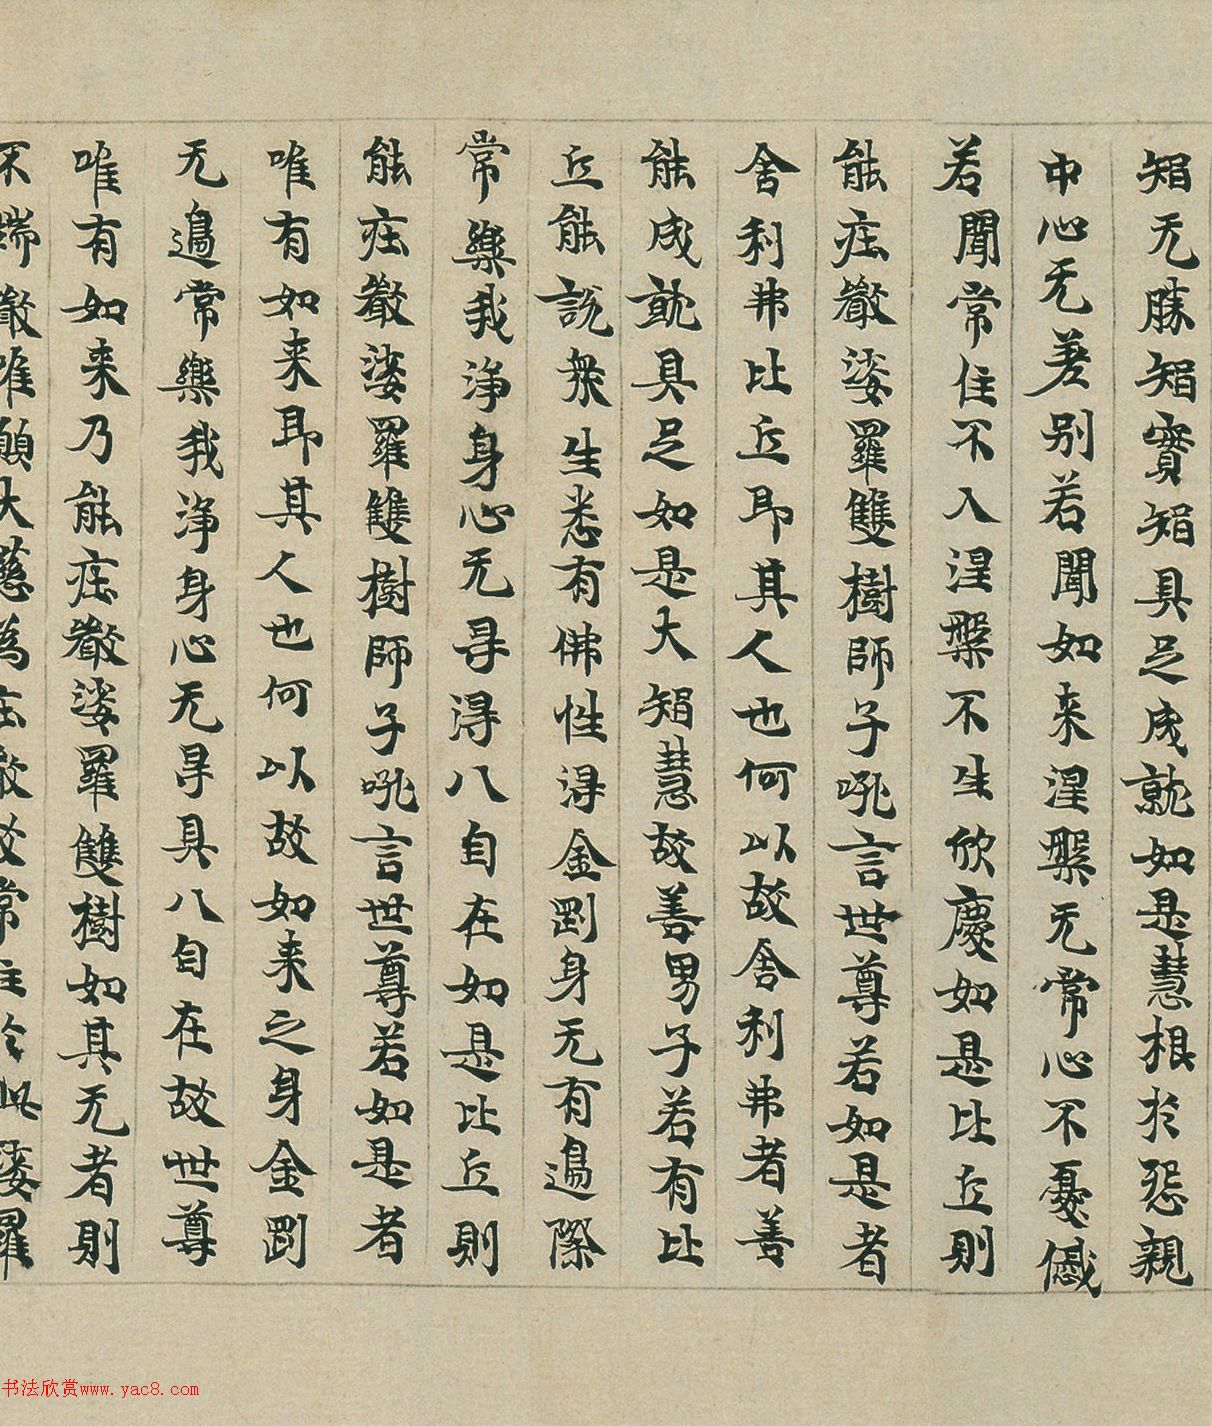 智无勝智實智具足成就如是慧根於怨親
中心无差別若聞如来涅槃无常心不憂慼
若聞常住不入涅槃不生欣慶如是比丘則
能庄嚴娑羅雙樹師子吼言世尊若如是者
舍利弗比丘即其人也何以故舍利弗者善
能成就具足如是大智慧故善男子若有比
丘能說衆生悉有佛性得金剛身无有邊際
常樂我淨身心无㝵得八自在如是比丘則
能庄嚴娑羅雙樹師子吼言世尊若如是者
唯有如来即其人也何以故如来之身金剛
无邊常樂我淨身心无㝵具八自在故世尊
唯有如来乃能庄嚴娑羅雙樹如其无者則
不端嚴唯願大慈為庄嚴故常住於此娑羅
书法欣赏www.yac8.com